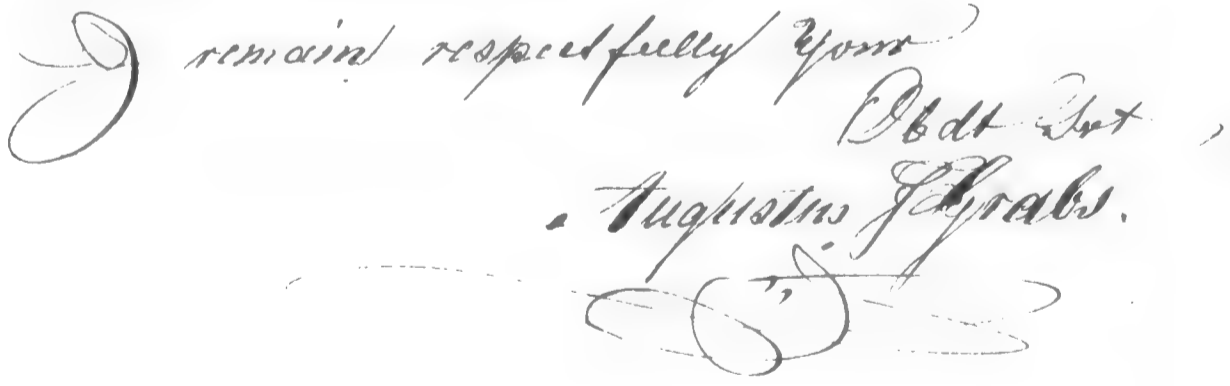 I remain respectfully Your
Obdt Svt
Augustus Grabs.